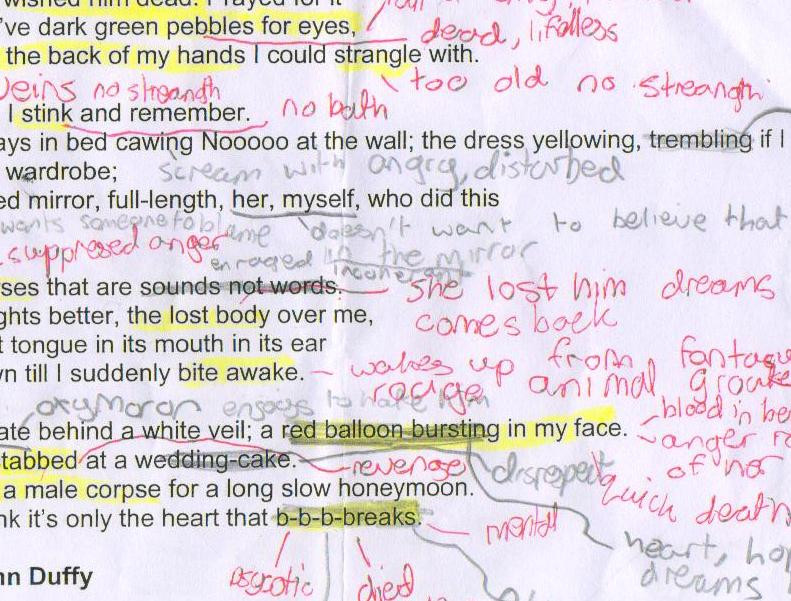 wished him dead. Prayed for it
've dark green pebbles for eyes,
dead, lifelless
the back of my hands I could strangle with.
veins no streangth
too old no streangth
I stink and remember.
no bath
ays in bed cawing Nooooo at the wall; the dress yellowing, trembling if I
scream with angry, disturbed
wardrobe;
ed mirror, full-length, her, myself, who did this
wants someone to blame
doesn't want to believe that
suppresed anger
enraged in the mirror
incoherant
ses that are sounds not words.
she lost him dreams
ghts better, the lost body over me,
comes back
t tongue in its mouth in its ear
wn till I suddenly bite awake.
wakes up from
animal
oxymoron enjoys to hate him
blood in be
ate behind a white veil; a red balloon bursting in my face.
anger
tabbed at a wedding-cake.
revenge
disrepect
of her
a male corpse for a long slow honeymoon.
quick death
nk it's only the heart that b-b-b-breaks.
mental
heart, hop
dreams
nn Duffy
died